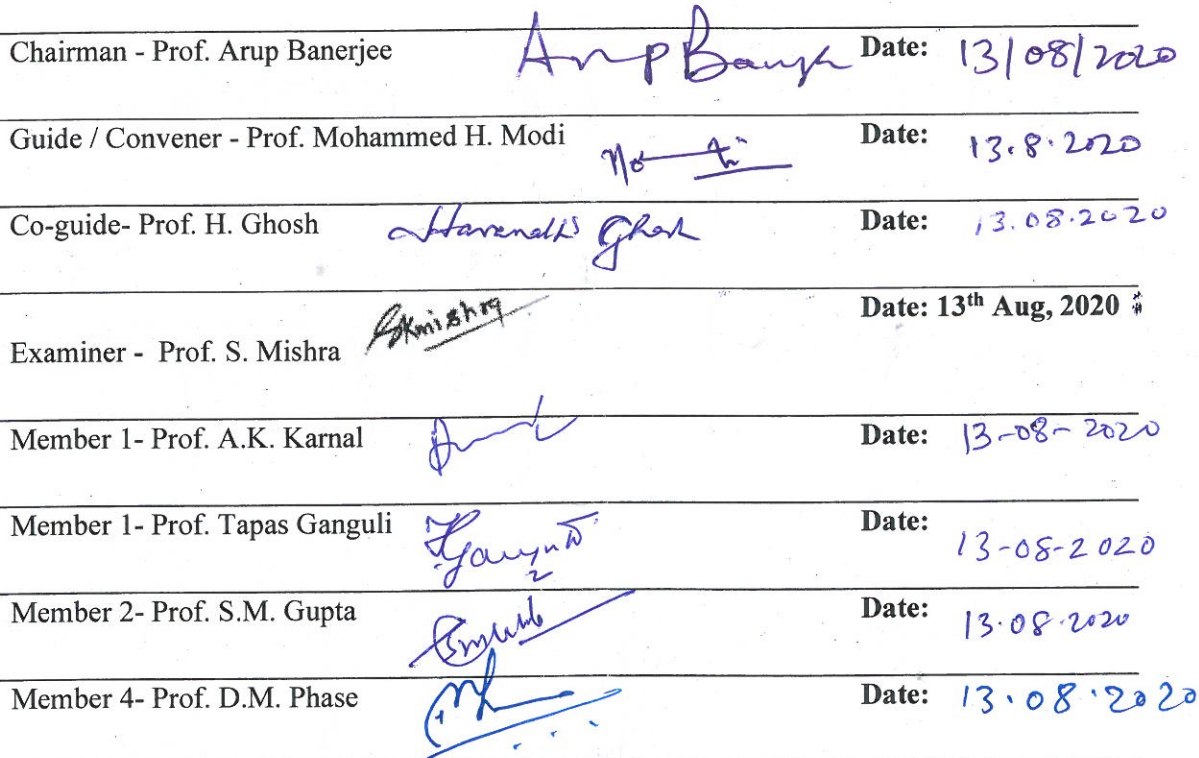 Chairman - Prof. Arup Banerjee Arup Date: 13/08/2020
Guide / Convener - Prof. Mohammed H. Modi Date: 13.8.2020
Co-guide- Prof. H. Ghosh Ghosh Date: 13.08.2020
Date: 13th Aug, 2020
Examiner - Prof. S. Mishra SKmishra
Member 1- Prof. A.K. Karnal Date: 13-08-2020
Member 1- Prof. Tapas Ganguli Date: 13-08-2020
Member 2- Prof. S.M. Gupta Date: 13.08.2020
Member 4- Prof. D.M. Phase Date: 13.08.2020